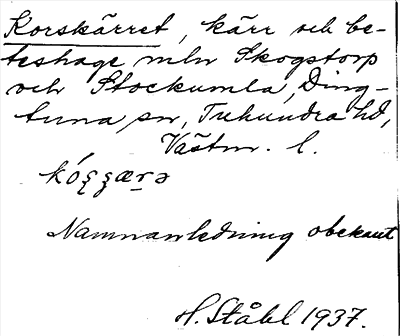 Korskärret, kärr och be-
teshage mln Skogstorp
och Stockumla, Ding-
tuna sn, Tuhundra hd,
Västm. l.
Namnanledning obekant
H. Ståhl 1937.